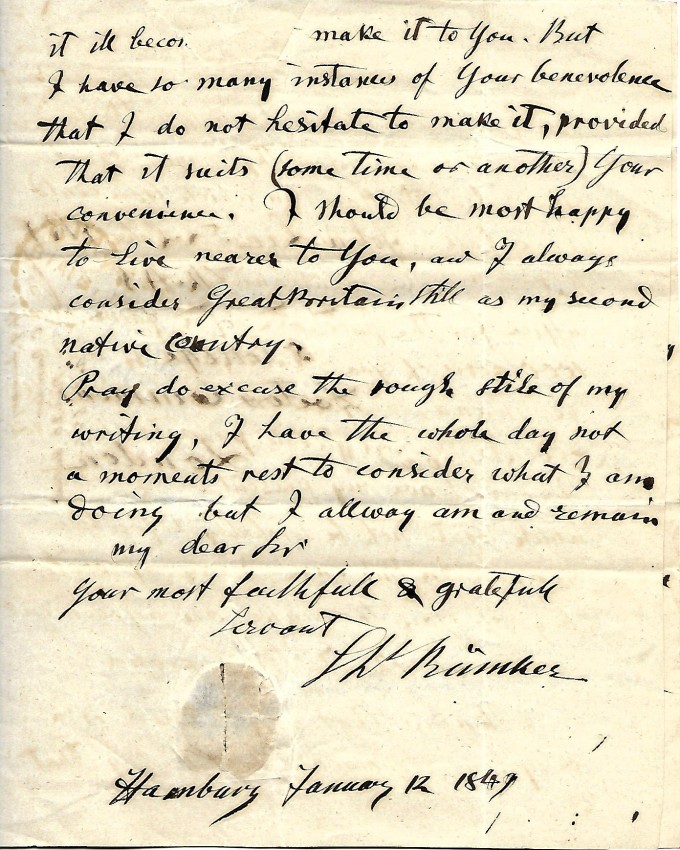 it ill becom make it to You. But
I have so many instances of Your benevolence
that I do not hesitate to make it, provided
that it suits (some time or another) Your
convenience. I should be most happy
to live nearer to You, and I always
consider Great Britain still as my second
native Country.
Pray do excuse the rough stile of my
writing, I have the whole day not
a moments rest to consider what I am
doing but I allway am and remain
my dear Sir
Your most faithfull & gratefull
Servant
Rümker
Hamburg January 12 1849